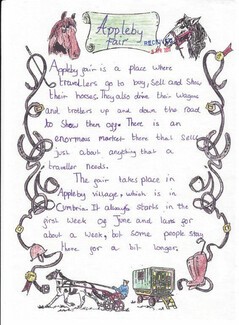 Appleby
fair
Appleby fair is a place where
travellers go to buy, sell and show
their horses. They also drive their wagons
and trotters up and down the road
to show them off. There is an
enormous market there that sells
just about anything that a
traveller needs.
The fair takes place in
Appleby village, which is in
Cumbria. It always starts in the
first week of June and lasts for
about a week, but some people stay
there for a bit longer.